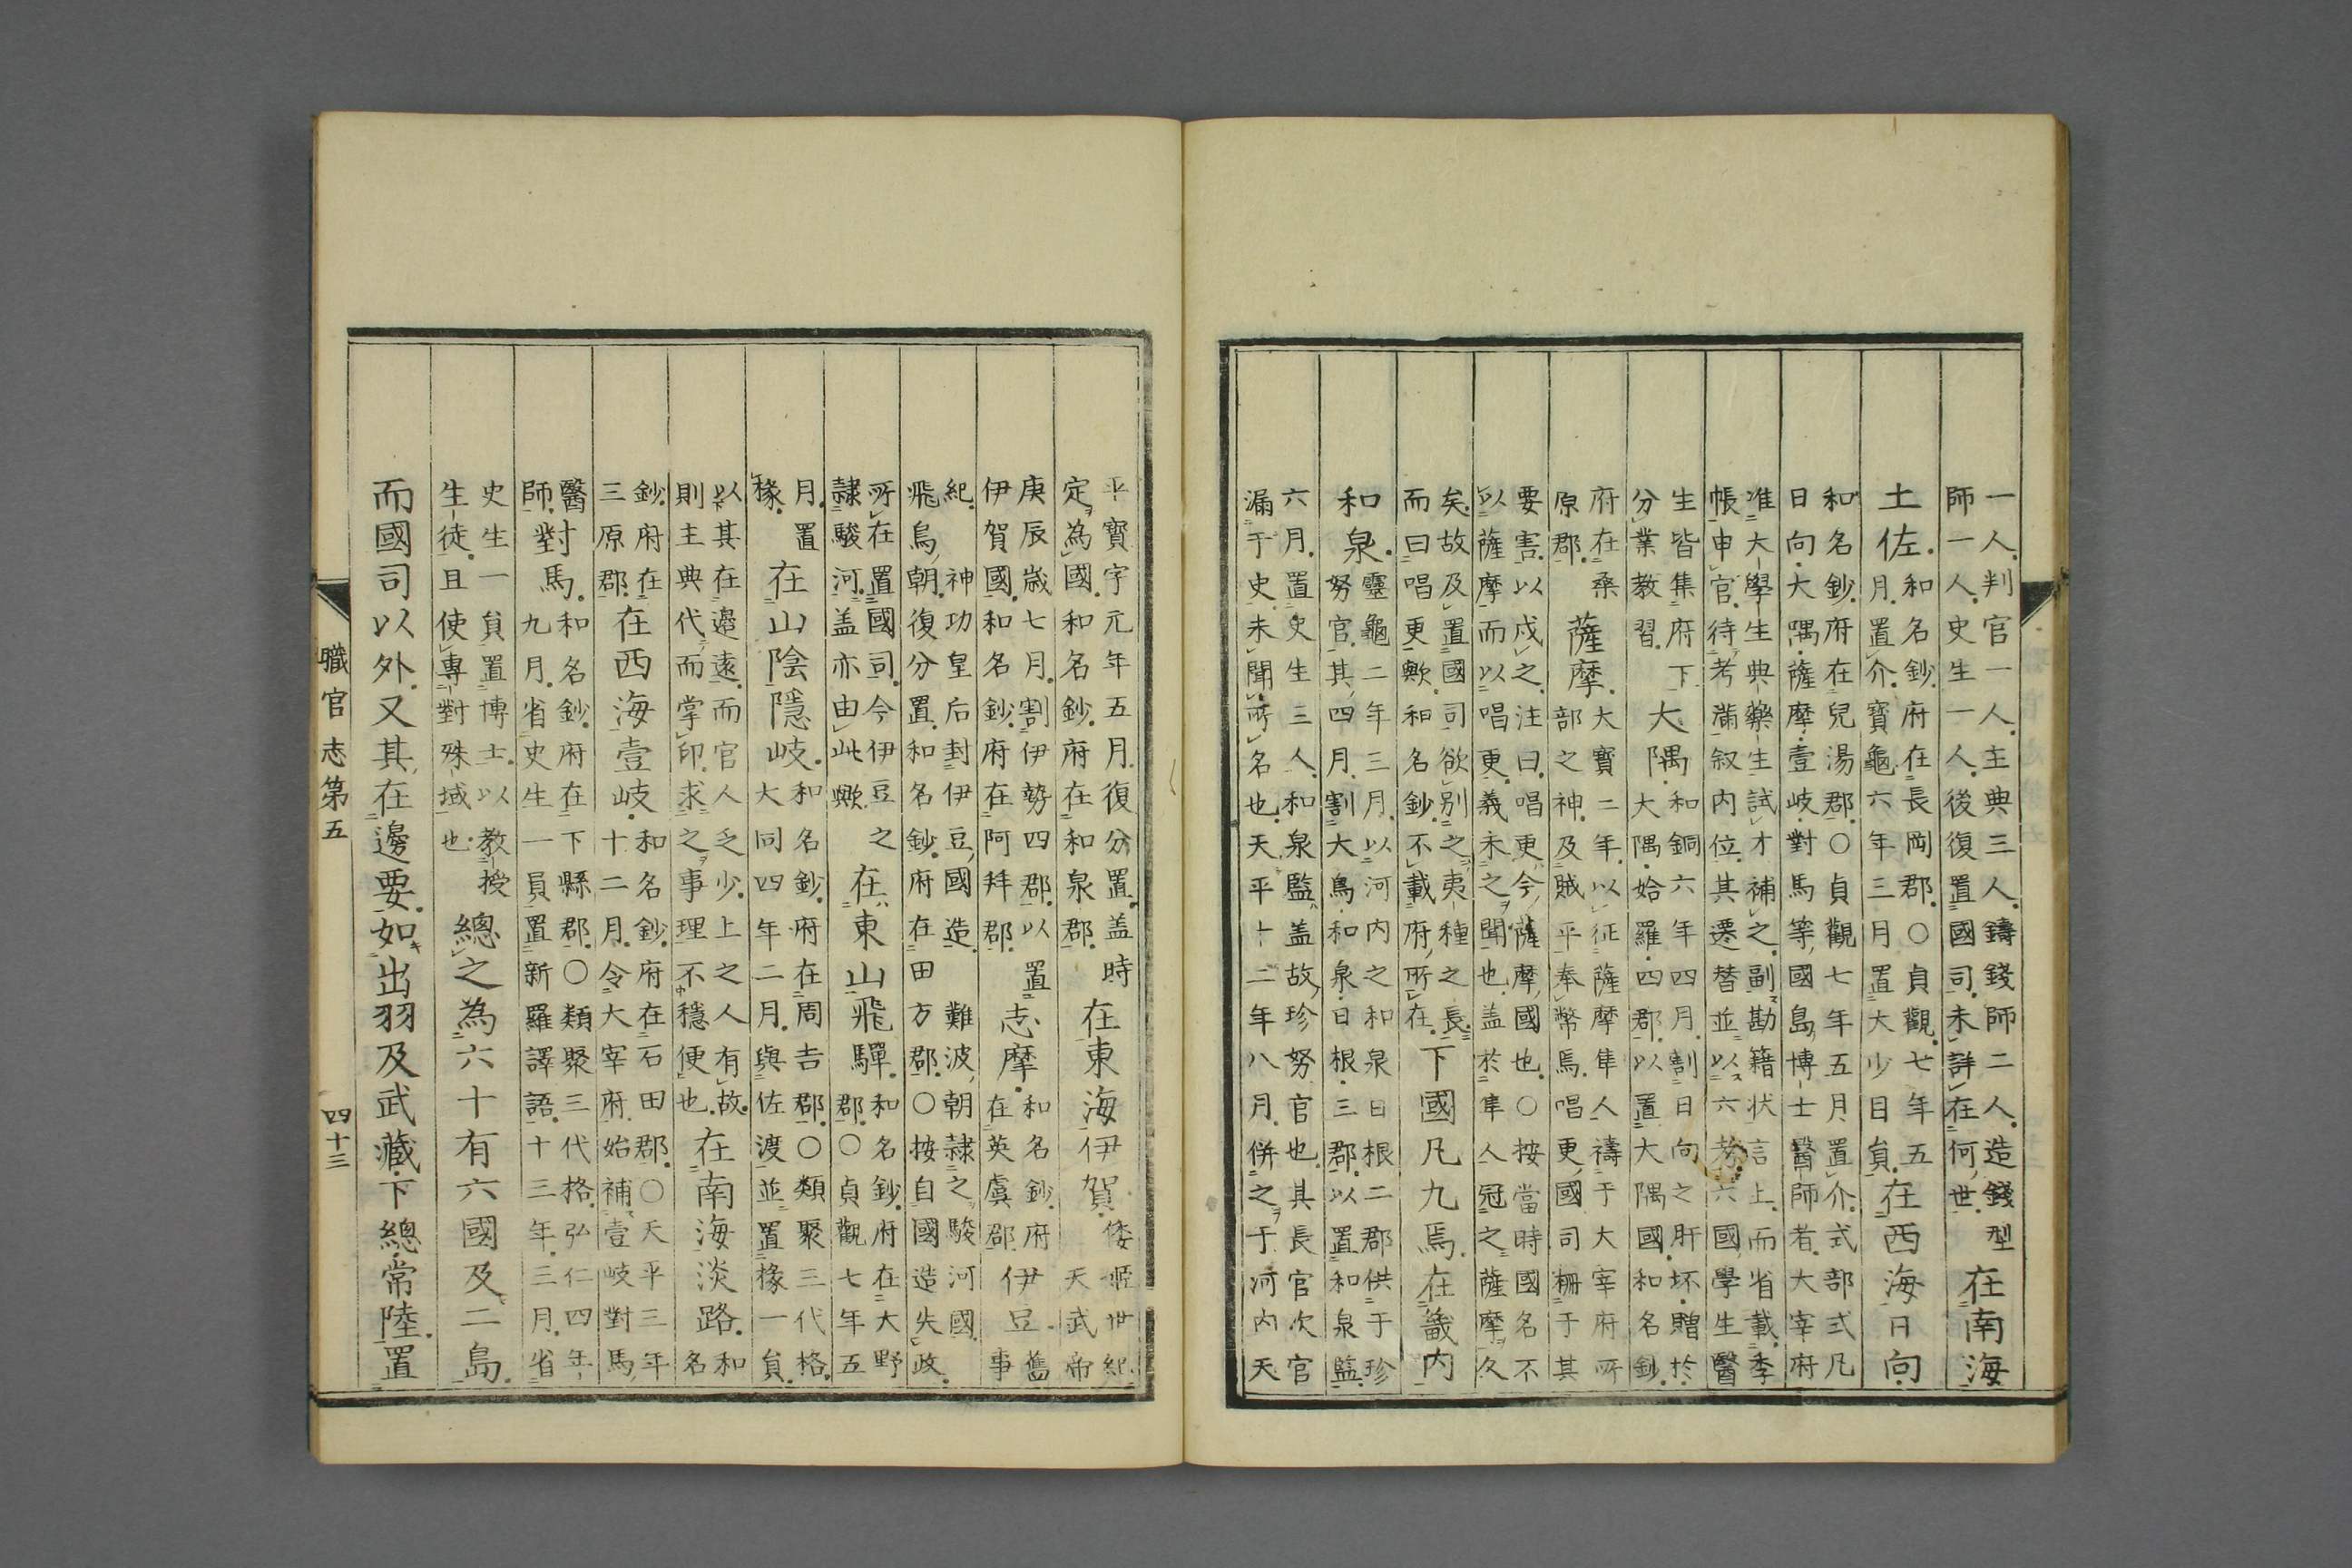 一人判官一人主典三人鑄錢師二人造錢型
師一人史生一人後復置國司未詳在何世
在南海
土佐
和名鈔府在長岡郡〇貞觀七年五
月置介寶龜六年三月置大少目員
在西海日向
和名鈔府在兒湯郡〇貞觀七年五月置介式部式凡
日向大隅薩摩壹岐對馬等國島博士醫師者大宰府
准大學生典藥生試才補之副勘籍状言上而省載季
帳申官待考滿叙内位其遷替並以六考六國學生醫
生皆集府下
分業教習
大隅
和銅六年四月割日向之肝坏贈於
大隅姶羅四郡以置大隅國和名鈔
府在桑
原郡
薩摩
大寶二年以征薩摩隼人禱于大宰府所
部之神及賊平奉幣焉唱更國司柵于其
要害以戍之注曰唱更今薩摩國也〇按當時國名不
以薩摩而以唱更義未之聞也盖於隼人冠之薩摩久
矣故及置國司欲別之夷種之長
而曰唱更歟和名鈔不載府所在
下國凡九焉在畿内
和泉
靈龜二年三月以河内之和泉日根二郡供于珍
努官其四月割大鳥和泉日根三郡以置和泉監
六月置史生三人和泉監盖故珍努官也其長官次官
漏于史未聞所名也天平十二年八月併之于河内天
平寶字元年五月復分置盖時
定為國和名鈔府在和泉郡
在東海伊賀
倭姫世紀
天武帝
庚辰歳七月割伊勢四郡以置
伊賀國和名鈔府在阿拜郡
志摩
和名鈔府
在英虞郡
伊豆
舊
事
紀神功皇后封伊豆國造難波朝隷之駿河國
飛鳥朝復分置和名鈔府在田方郡〇按自國造失政
所在置國司今伊豆之
隷駿河盖亦由此歟
在東山飛驒
和名鈔府在大野
郡〇貞觀七年五
月置
掾
在山陰隱岐
和名鈔府在周吉郡〇類聚三代格
大同四年二月與佐渡並置掾一員
以其在邊遠而官人乏少上之人有故
則主典代而掌印求之事理不穩便也
在南海淡路
和
名
鈔府在
三原郡
在西海壹岐
和名鈔府在石田郡〇天平三年
十二月令大宰府始補壹岐對馬
醫
師
對馬
和名鈔府在下縣郡〇類聚三代格弘仁四年
九月省史生一員置新羅譯語十三年三月省
史生一員置博士以教授
生徒且使專對殊域也
總之為六十有六國及二島
而國司以外又其在邊要如出羽及武藏下總常陸置
職官志第五
四十三